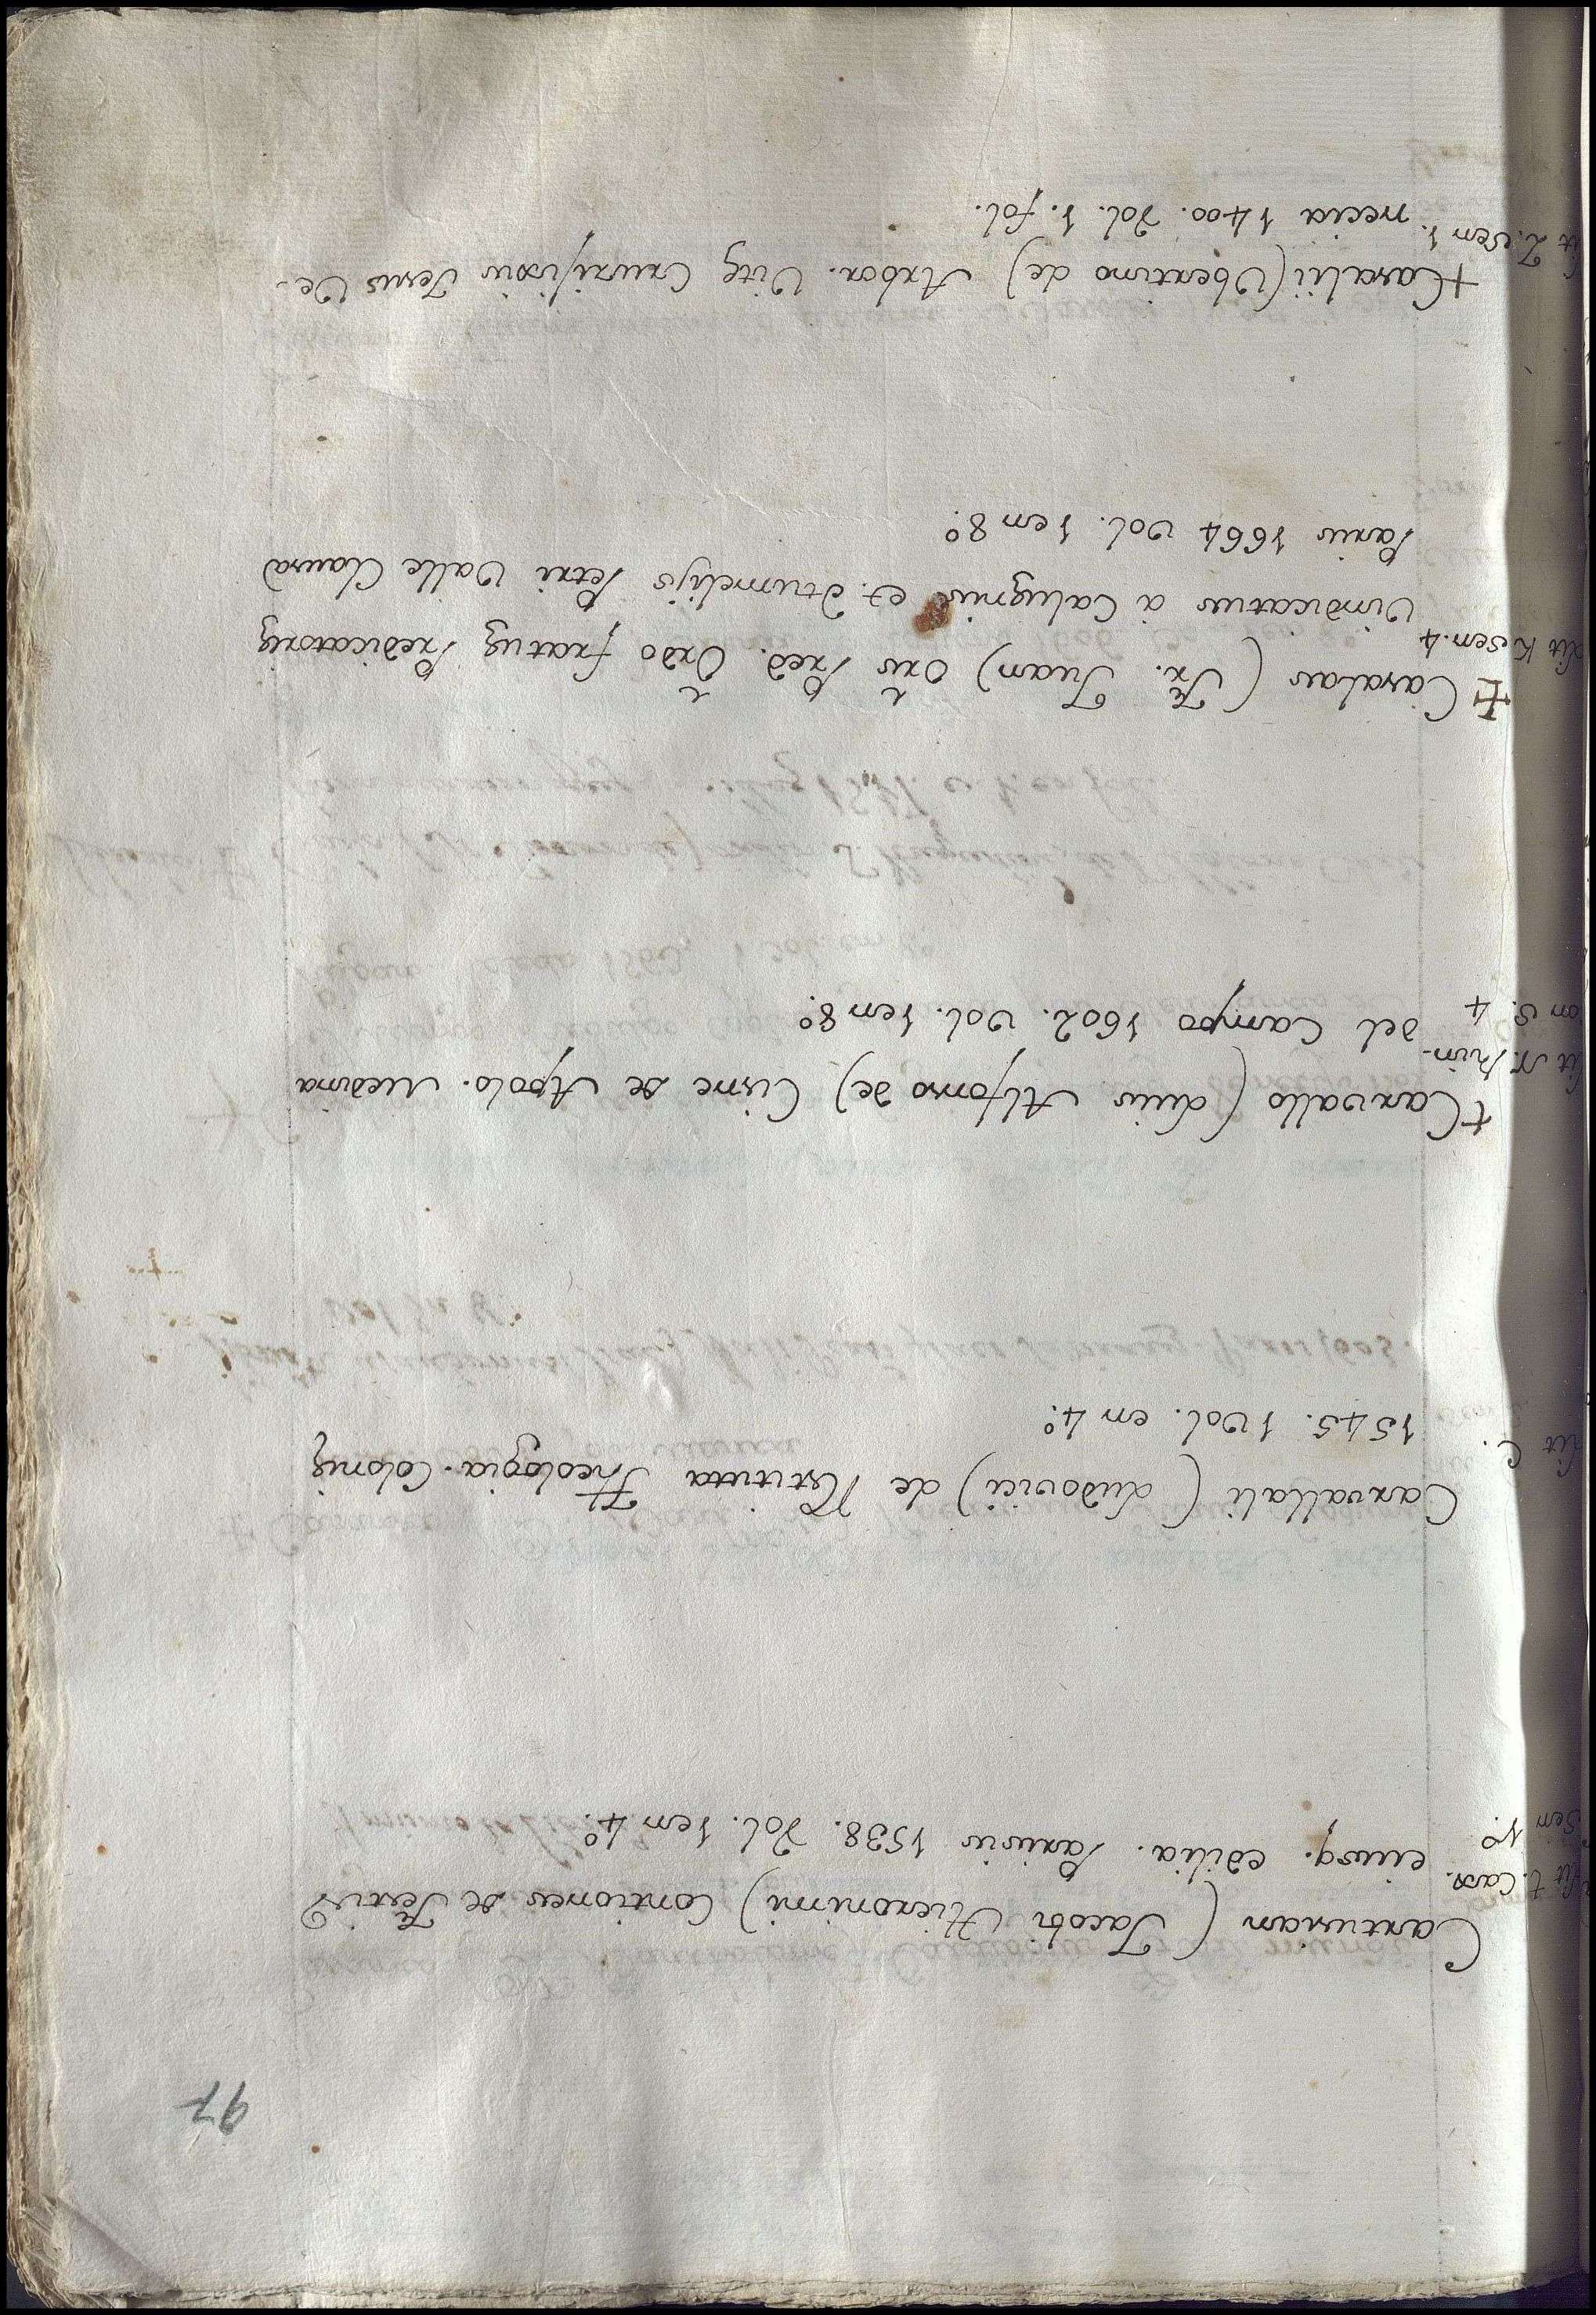 97
Cartusian (Jacobi Hieronimi) Contiones de Festis
eiusq. edilia. Parisiis 1538. Vol. 1 en 4º.
Lit t. Cax.
Sem 1º.
Carvallali (Ludovici) de Restituta Theologia. Colonię
1545. 1 Vol. en 4º.
Lit C.
+ Carvallo (Luis Alfonso de) Cisne de Apolo. Medina
del Campo 1602. Vol. 1 en 8º.
Lit N. Prim-
on S. 4
Casalas (Fr. Juan) Ors Pred. Ordo fratrũ Predicatorũ
Vindicatus à Calugnis et Dtumelijs Petri Valle Clausa
Paris 1664 Vol. 1 en 8º.
Lit K. Sem. 4
+ Casalii (Vbertino de) Arbor. Vitę Crucifixio Jesus Ve-
necia 1400. Vol. 1. fol.
Lit Z. Sem 1.